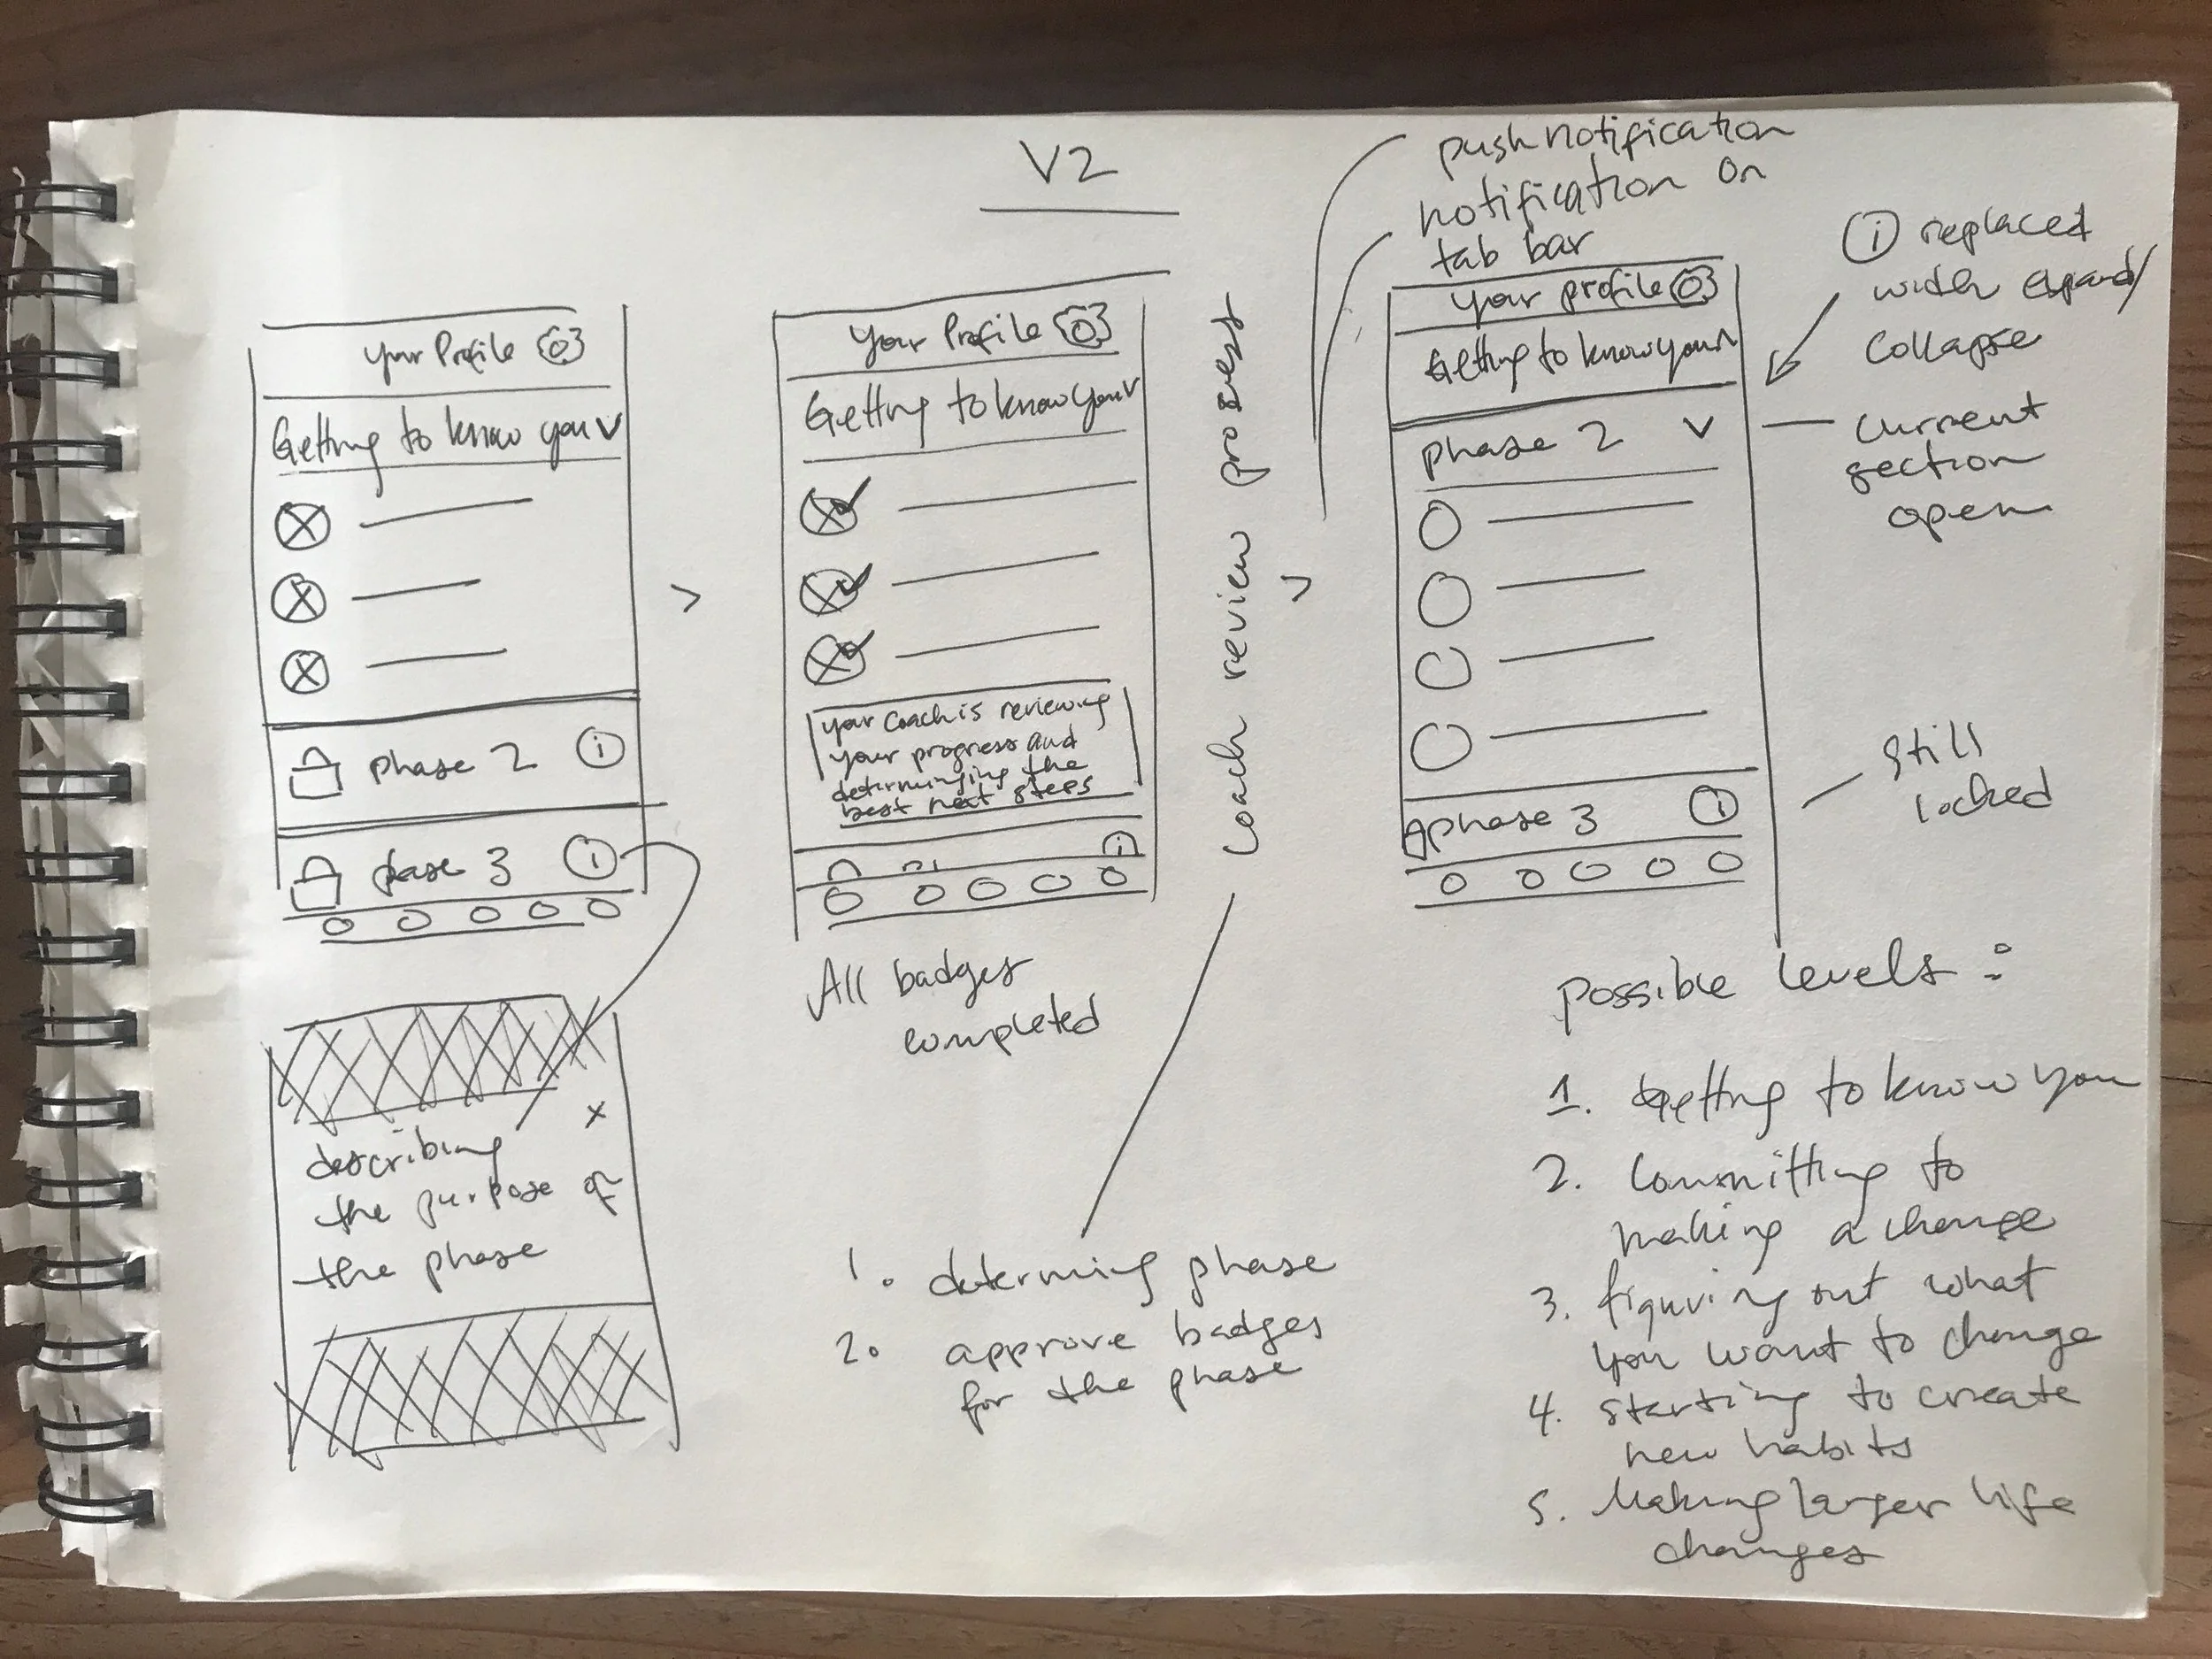 V2
push notification
notification on
tab bar
i replaced
with expand/
collapse
current
section
open
still
locked
Your Profile
Getting to know you
phase 2 i
phase 3 i
x
describing
the purpose of
the phase
Your Profile
Getting to know you
your coach is reviewing
your progress and
determinging the
best next steps
i
All badges
completed
coach review process
1. determing phase
2. approve badges
for the phase
Your profile
Getting to know you
phase 2
phase 3 i
possible levels:
1. Getting to know you
2. Committing to
making a change
3. figuring out what
you want to change
4. starting to create
new habits
5. Making larger life
changes